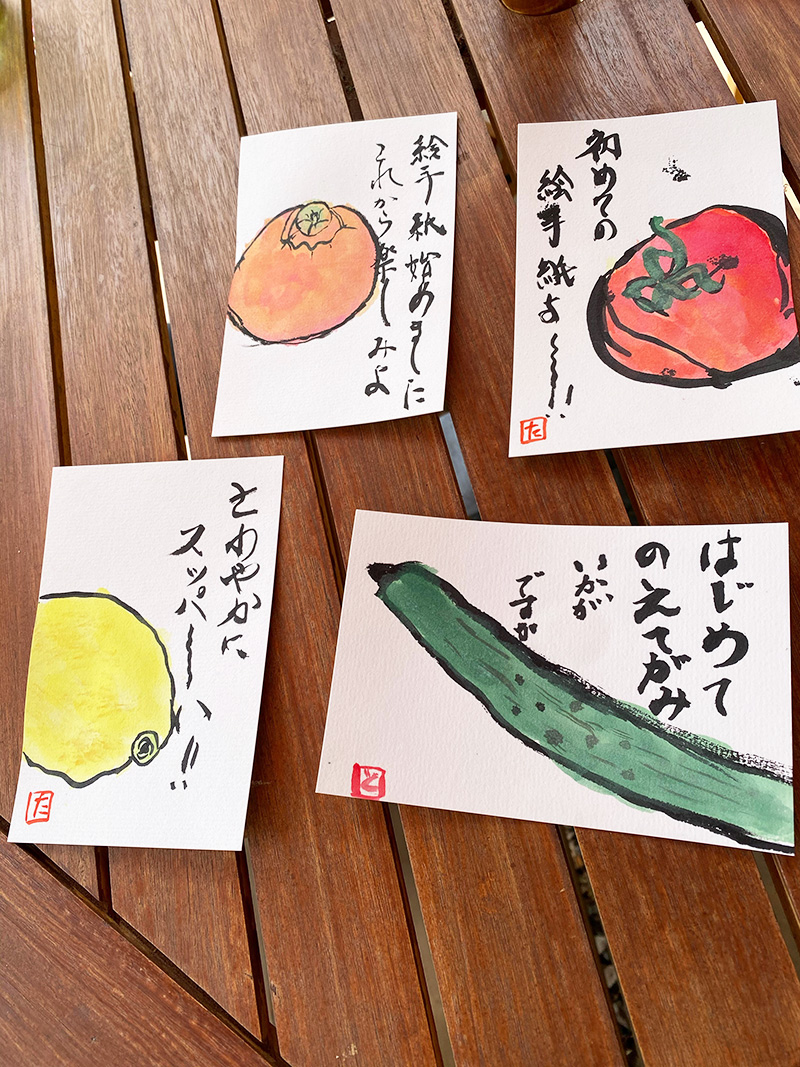 絵手紙始めました
これから楽しみよ
初めての
絵手紙よ〜!!
た
さわやかに
スッパ〜い!!
た
はじめて
のえてがみ
いかが
ですか
と